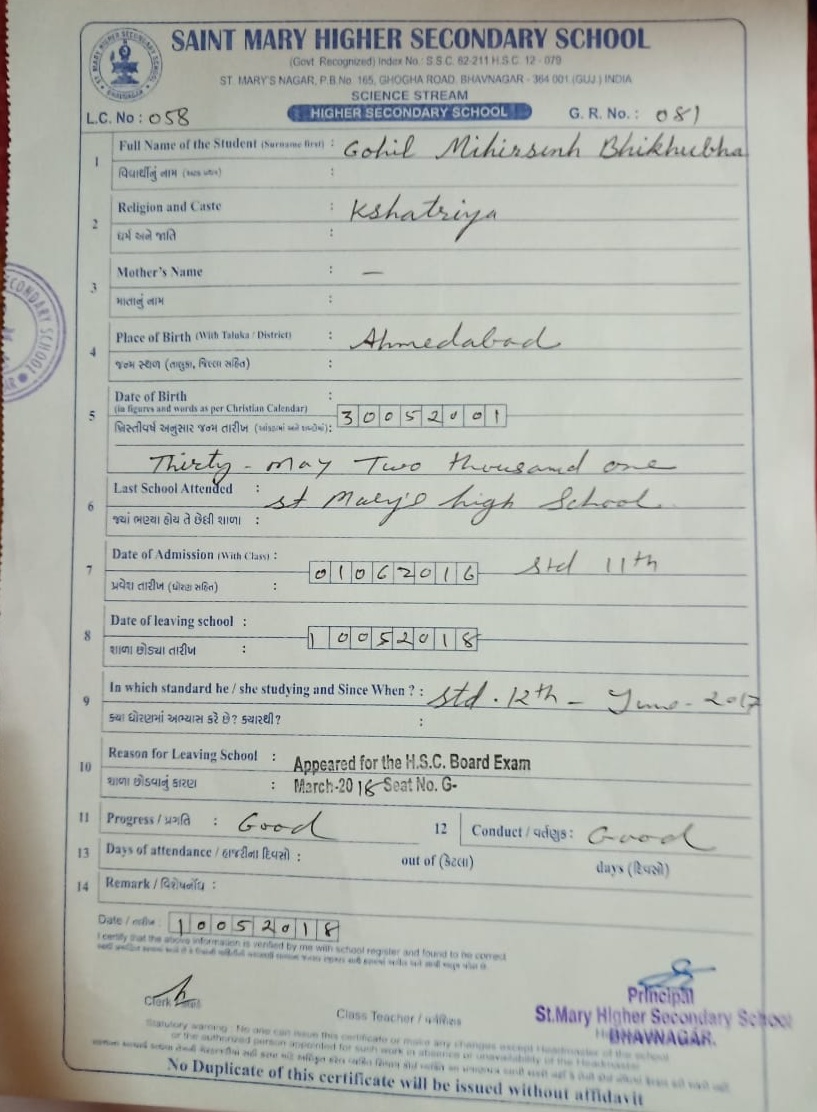 SAINT MARY HIGHER SECONDARY SCHOOL
(Govt. Recognized) Index No.: S.S.C. 62-211 H.S.C. 12 - 079
ST. MARY'S NAGAR, P.B.No. 165, GHOGHA ROAD, BHAVNAGAR - 364 001 (GUJ.) INDIA
SCIENCE STREAM
L.C. No : 058 HIGHER SECONDARY SCHOOL G. R. No. : 081
1 Full Name of the Student (Surname first) : Gohil Mihirsinh Bhikhubha
વિદ્યાર્થીનું નામ :
2 Religion and Caste : Kshatriya
ધર્મ અને જાતિ :
3 Mother's Name : —
માતાનું નામ :
4 Place of Birth (With Taluka / District) : Ahmedabad
જન્મ સ્થળ (તાલુકા, જિલ્લા સહિત) :
5 Date of Birth :
(in figures and words as per Christian Calendar) 30052001
ખ્રિસ્તીવર્ષ અનુસાર જન્મ તારીખ (આંકડામાં અને શબ્દોમાં):
Thirty - may Two thousand one
6 Last School Attended : st Mary's high School
જ્યાં ભણ્યા હોય તે છેલ્લી શાળા :
7 Date of Admission (With Class) : 01062016 Std 11th
પ્રવેશ તારીખ (ધોરણ સહિત) :
8 Date of leaving school : 10052018
શાળા છોડ્યા તારીખ :
9 In which standard he / she studying and Since When ? : Std. 12th - June - 2017
ક્યા ધોરણમાં અભ્યાસ કરે છે? ક્યારથી? :
10 Reason for Leaving School : Appeared for the H.S.C. Board Exam
શાળા છોડવાનું કારણ : March-2018 Seat No. G-
11 Progress / પ્રગતિ : Good 12 Conduct / વર્તણુક : Good
13 Days of attendance / હાજરીના દિવસો : out of (કેટલા) days (દિવસો)
14 Remark / વિશેષનોંધ :
Date / તારીખ : 10052018
I certify that the above information is verified by me with school register and found to be correct
Clerk
Class Teacher / વર્ગશિક્ષક
Principal
St.Mary Higher Secondary School
BHAVNAGAR.
Statutory warning : No one can issue this certificate or make any changes except Headmaster of the school
or the authorized person appointed for such work in absence or unavailability of the Headmaster
No Duplicate of this certificate will be issued without affidavit